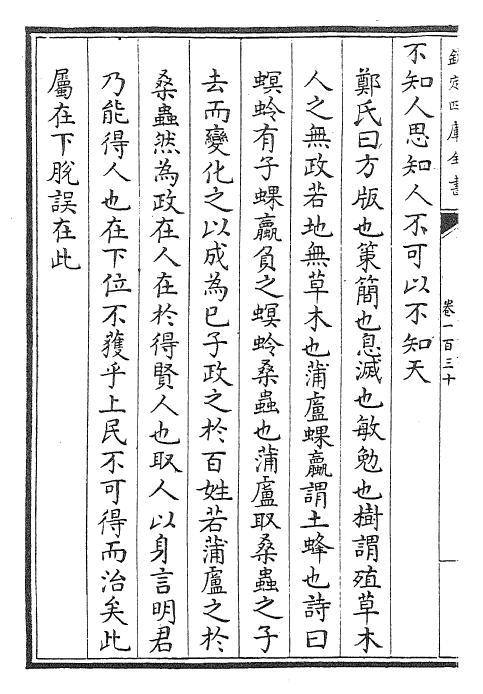 欽定四庫全書
卷一百三十
不知人思知人不可以不知天
鄭氏曰方版也策簡也息滅也敏勉也樹謂殖草木
人之無政若地無草木也蒲盧蜾蠃謂土蜂也詩曰
螟蛉有子蜾蠃負之螟蛉桑蟲也蒲盧取桑蟲之子
去而變化之以成為已子政之於百姓若蒲盧之於
桑蟲然為政在人在於得賢人也取人以身言明君
乃能得人也在下位不獲乎上民不可得而治矣此
屬在下脫誤在此